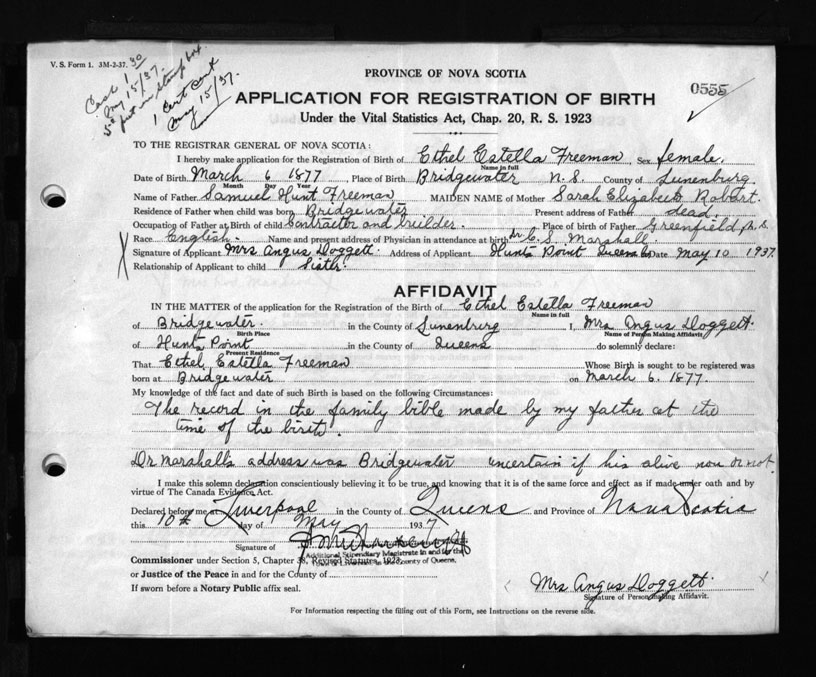 V. S. Form 1. 3M-2-37.
Cash 1.30
May 15/37.
5¢ put in stamp box.
1 Cert sent
May 15/37.
PROVINCE OF NOVA SCOTIA
0555
APPLICATION FOR REGISTRATION OF BIRTH
Under the Vital Statistics Act, Chap. 20, R. S. 1923
TO THE REGISTRAR GENERAL OF NOVA SCOTIA:
I hereby make application for the Registration of Birth of Ethel Estella Freeman, Sex female.
Name in full
Date of Birth March 6 1877 Place of Birth Bridgewater N. S County of Lunenburg.
Month Day Year
Name of Father Samuel Hunt Freeman MAIDEN NAME of Mother Sarah Elizabeth Robart.
Residence of Father when child was born Bridgewater Present address of Father dead.
Occupation of Father at Birth of child Contractor and builder. Place of birth of Father Greenfield, N.S.
Race English. Name and present address of Physician in attendance at birth Dr C. S. Marshall.
Signature of Applicant Mrs Angus Doggett. Address of Applicant Hunts Point Queens Co Date May 10 1937.
Relationship of Applicant to child Sister.
AFFIDAVIT
IN THE MATTER of the application for the Registration of the Birth of Ethel Estella Freeman
Name in full
of Bridgewater. in the County of Lunenburg I, Mrs Angus Doggett.
Birth Place Name of Person Making Affidavit.
of Hunts Point in the County of Queens do solemnly declare:
Present Residence
That Ethel Estella Freeman Whose Birth is sought to be registered was
born at Bridgewater on March 6. 1877.
My knowledge of the fact and date of such Birth is based on the following Circumstances:
The record in the family bible made by my father at the
time of the birth.
Dr Marshall's address was Bridgewater uncertain if his alive now or not.
I make this solemn declaration conscientiously believing it to be true, and knowing that it is of the same force and effect as if made under oath and by
virtue of The Canada Evidence Act.
Declared before me at Liverpool in the County of Queens and Province of Nova Scotia
this 10th day of May 1937
Signature of
Additional Stipendiary Magistrate in and for the
County of Queens,
Commissioner under Section 5, Chapter 38, Revised Statutes, 1923
or Justice of the Peace in and for the County of
If sworn before a Notary Public affix seal.
Mrs Angus Doggett.
Signature of Person making Affidavit.
For Information respecting the filling out of this Form, see Instructions on the reverse side.